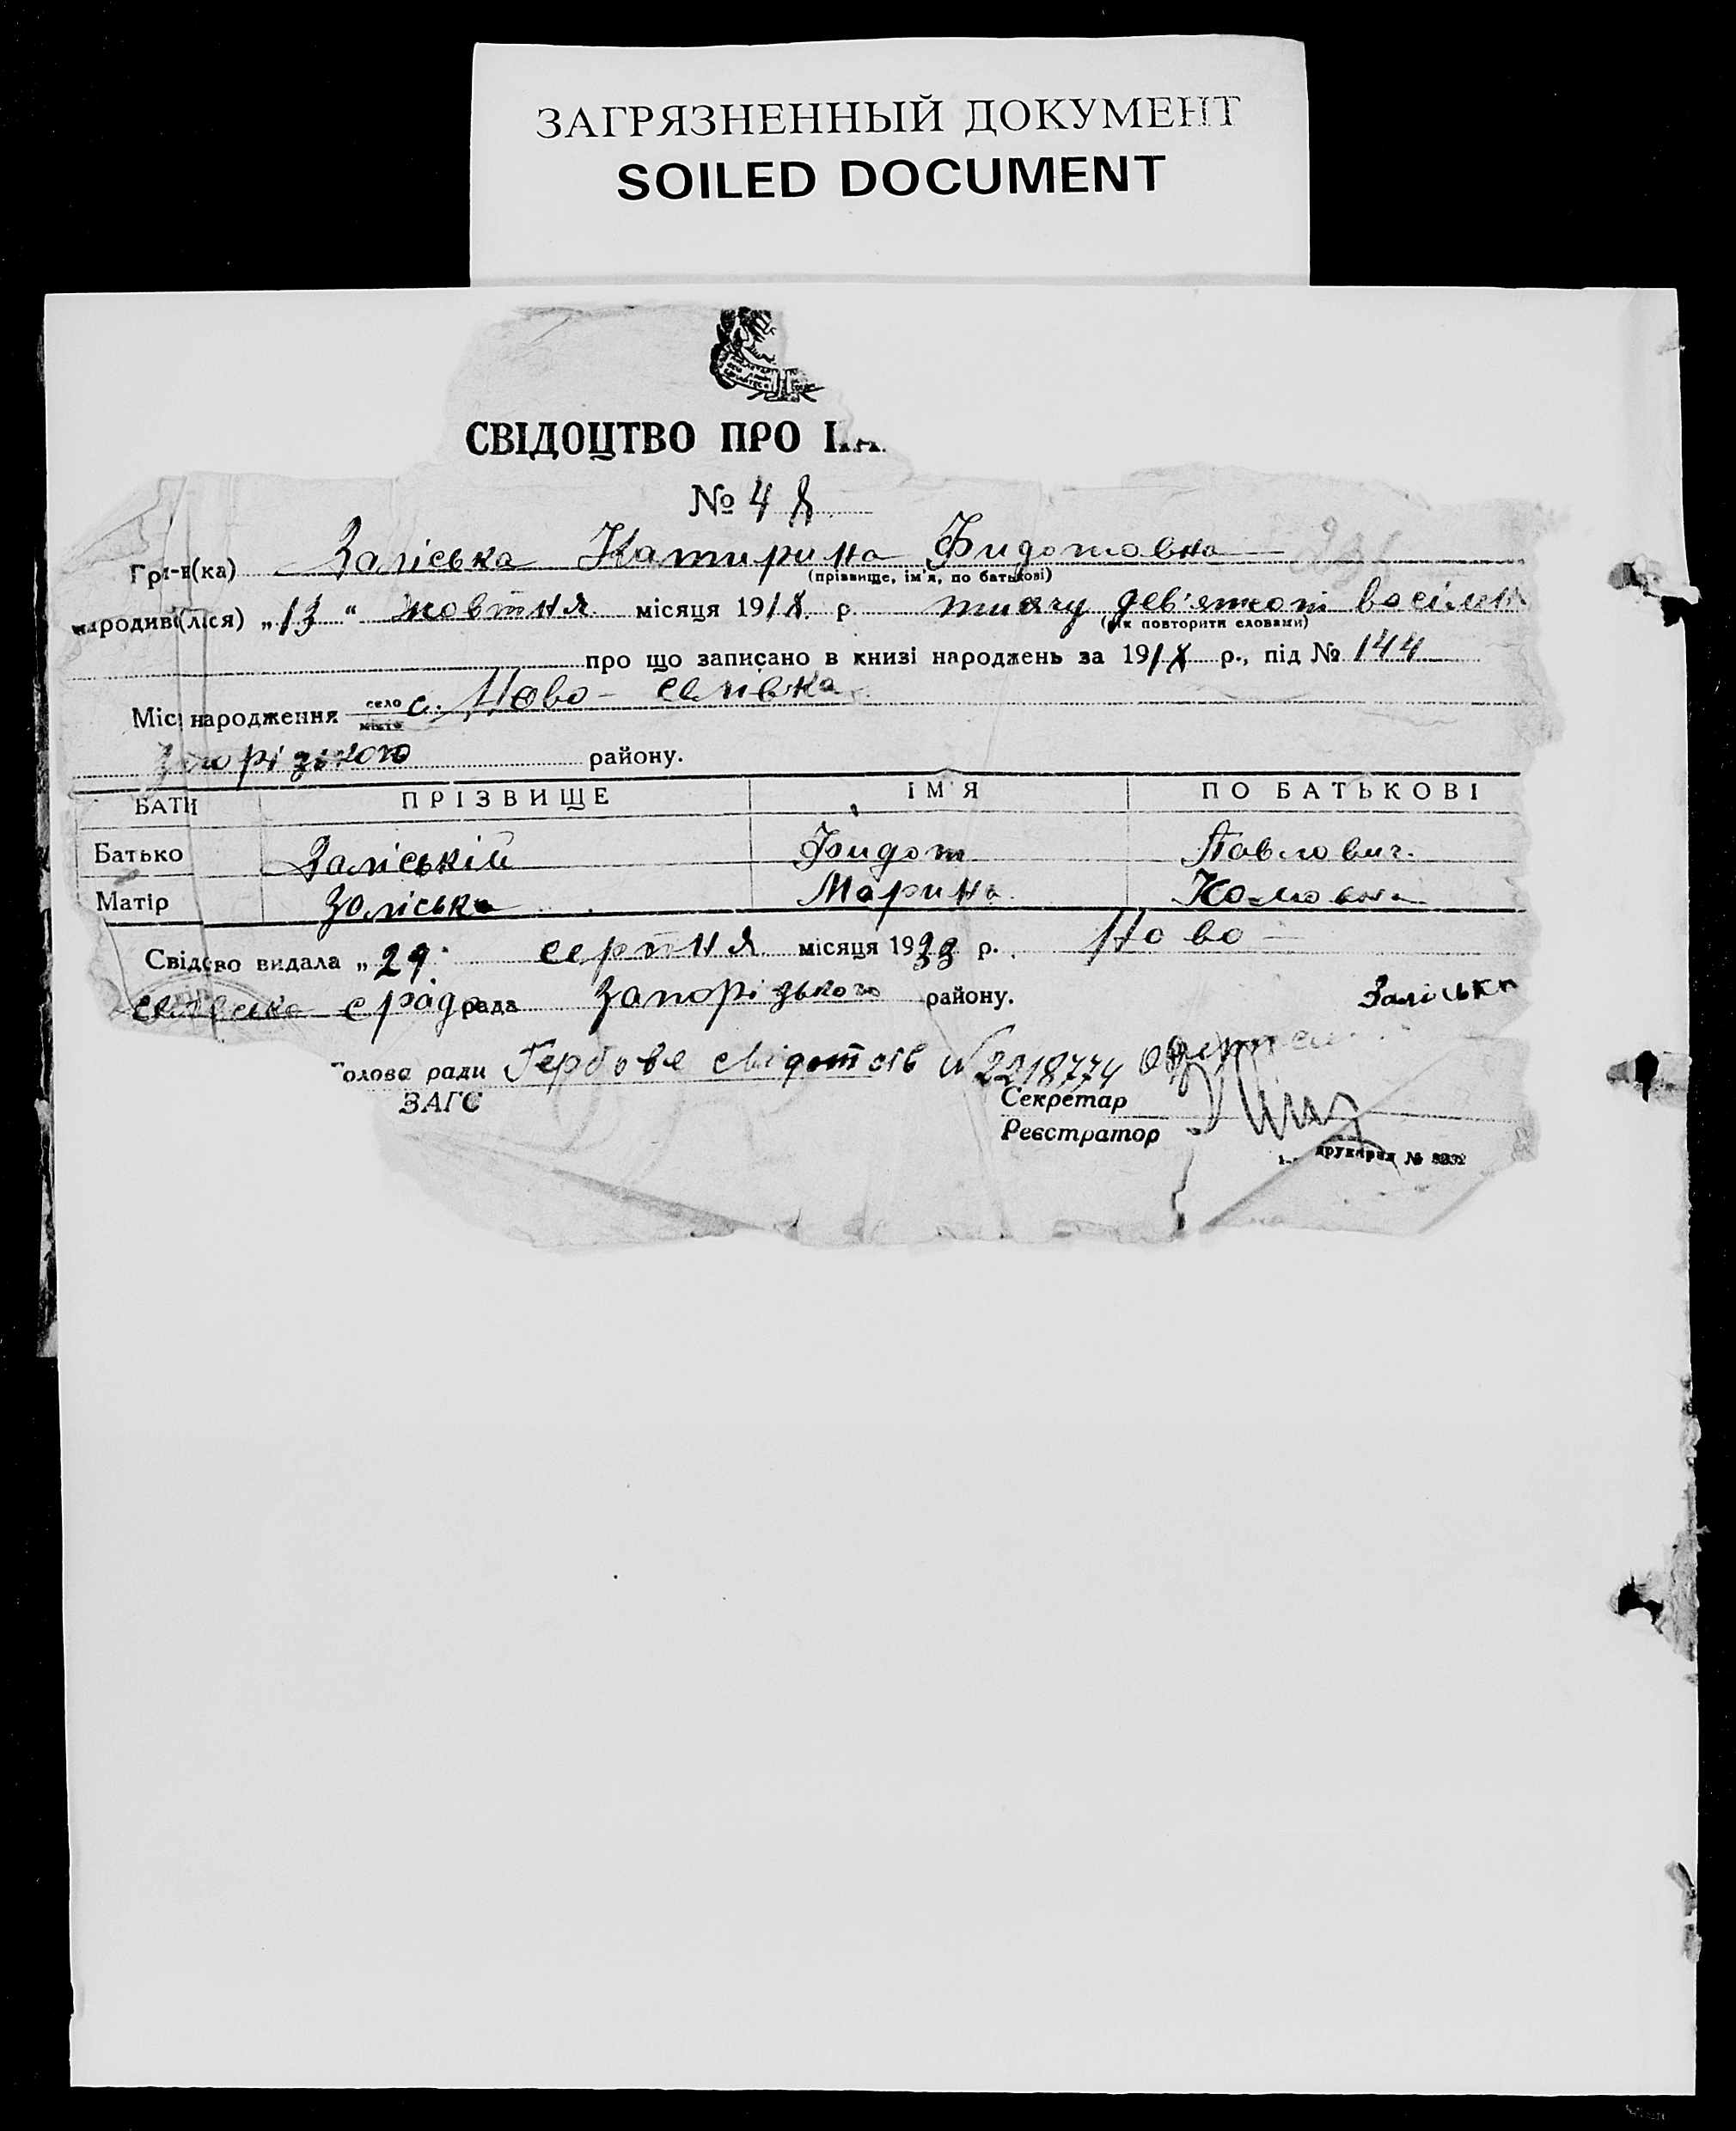 ЗАГРЯЗНЕННЫЙ ДОКУМЕНТ
SOILED DOCUMENT
СВІДОЦТВО ПРО
№ 48
Гр-н(ка) Заліська Катирина Фидотовна
(прізвище, ім'я, по батькові)
народив(лася) „13" жовтня місяця 1918 р. тисячу девʼятсоті восімн
(рік повторити словами)
про що записано в книзі народжень за 1918 р., під № 144
Міс народження село с. Ново-селівка
місто
Запорізького району.
БАТИ ПРІЗВИЩЕ ІМ'Я ПО БАТЬКОВІ
Батько Заліській Фидот Павлович
Матір Заліська Марина
Свідово видала „29" серпня місяця 1933 р. Ново-
рада Запорізького району. Заліська
Голова ради Гербове N 2218774
ЗАГС Секретар
Реєстратор
друкарня №